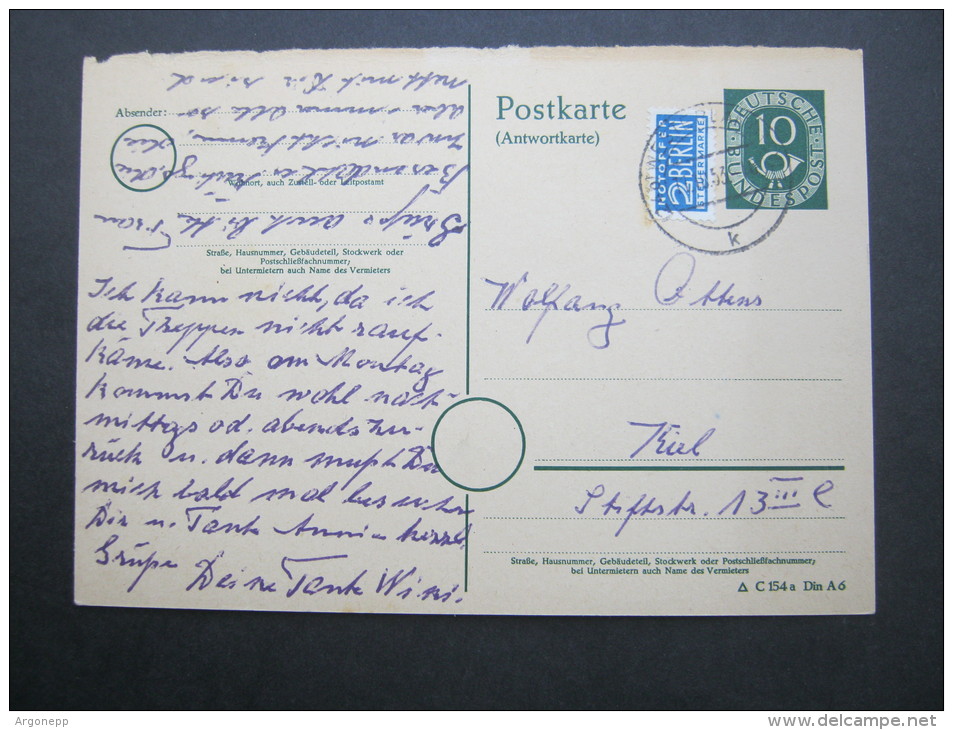 Absender:
Wohnort, auch Zustell- oder Leitpostamt
Straße, Hausnummer, Gebäudeteil, Stockwerk oder
Postschließfachnummer;
bei Untermietern auch Name des Vermieters
Ich kann nicht, da ich
die Treppen nicht rauf-
käme. Also am Montag
kommst Du wohl nach-
mittags od. abends zu-
rück u. dann mußt Du
mich bald mal besuchen
Dir u. Tante Annie herzl.
Grüße Deine Tante Wini.
Grüße auch bitte Frau
zwar nicht kenne, die
aber immer alle so
nett mit Dir sind
Postkarte
(Antwortkarte)
NOTOPFER
2 BERLIN
STEUERMARKE
DEUTSCHE
10
BUNDESPOST
53
k
Wolfgang Ottens
Kiel
Stiftstr. 13 III l
Straße, Hausnummer, Gebäudeteil, Stockwerk oder Postschließfachnummer;
bei Untermietern auch Name des Vermieters
△ C 154 a Din A 6
Argonepp
delcampe.net